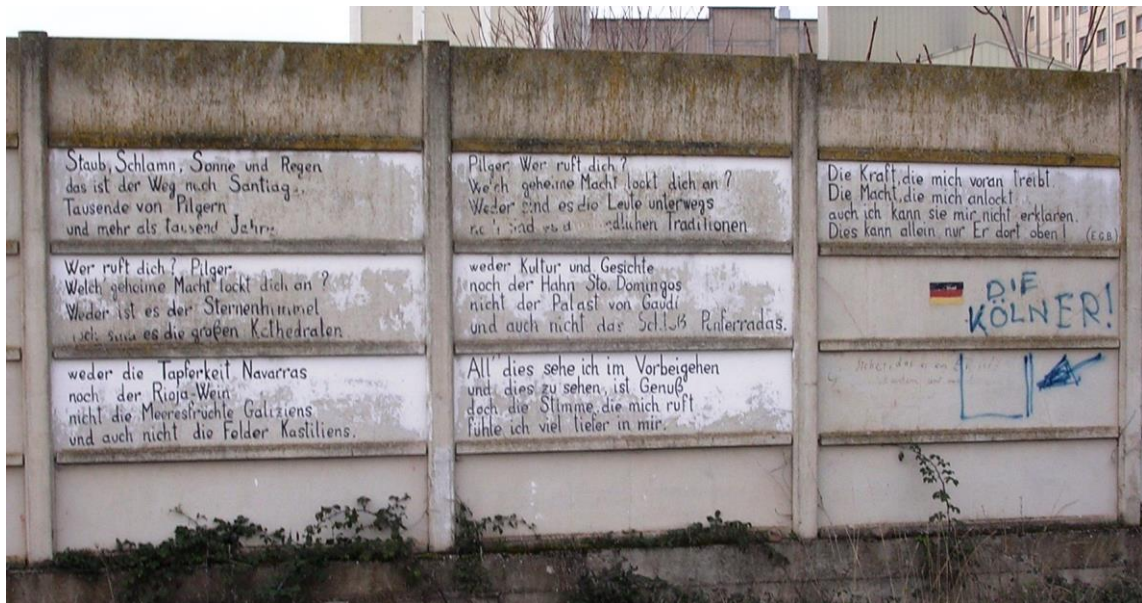 Staub, Schlamn, Sonne und Regen
das ist der Weg nach Santiag
Tausende von Pilgern
und mehr als tausend Jahre
Wer ruft dich? Pilger
Welch geheime Macht lockt dich an?
Weder ist es der Sternenhimmel
sind es die großen Kathedralen
weder die Tapferkeit Navarras
noch der Rioja-Wein
nicht die Meeresfrüchte Galiziens
und auch nicht die Felder Kastiliens.
Pilger Wer ruft dich?
Welch geheime Macht lockt dich an?
Weder sind es die Leute unterwegs
sind Traditionen
weder Kultur und Gesichte
noch der Hahn Sto. Domingos
nicht der Palast von Gaudí
und auch nicht das Schloß Ponferradas.
All' dies sehe ich im Vorbeigehen
und dies zu sehen, ist Genuß,
doch die Stimme, die mich ruft
fühle ich viel tiefer in mir.
Die Kraft, die mich voran treibt.
Die Macht, die mich anlockt
auch ich kann sie mir nicht erklären.
Dies kann allein nur Er dort oben! (E.G.B)
DIE
KÖLNER!